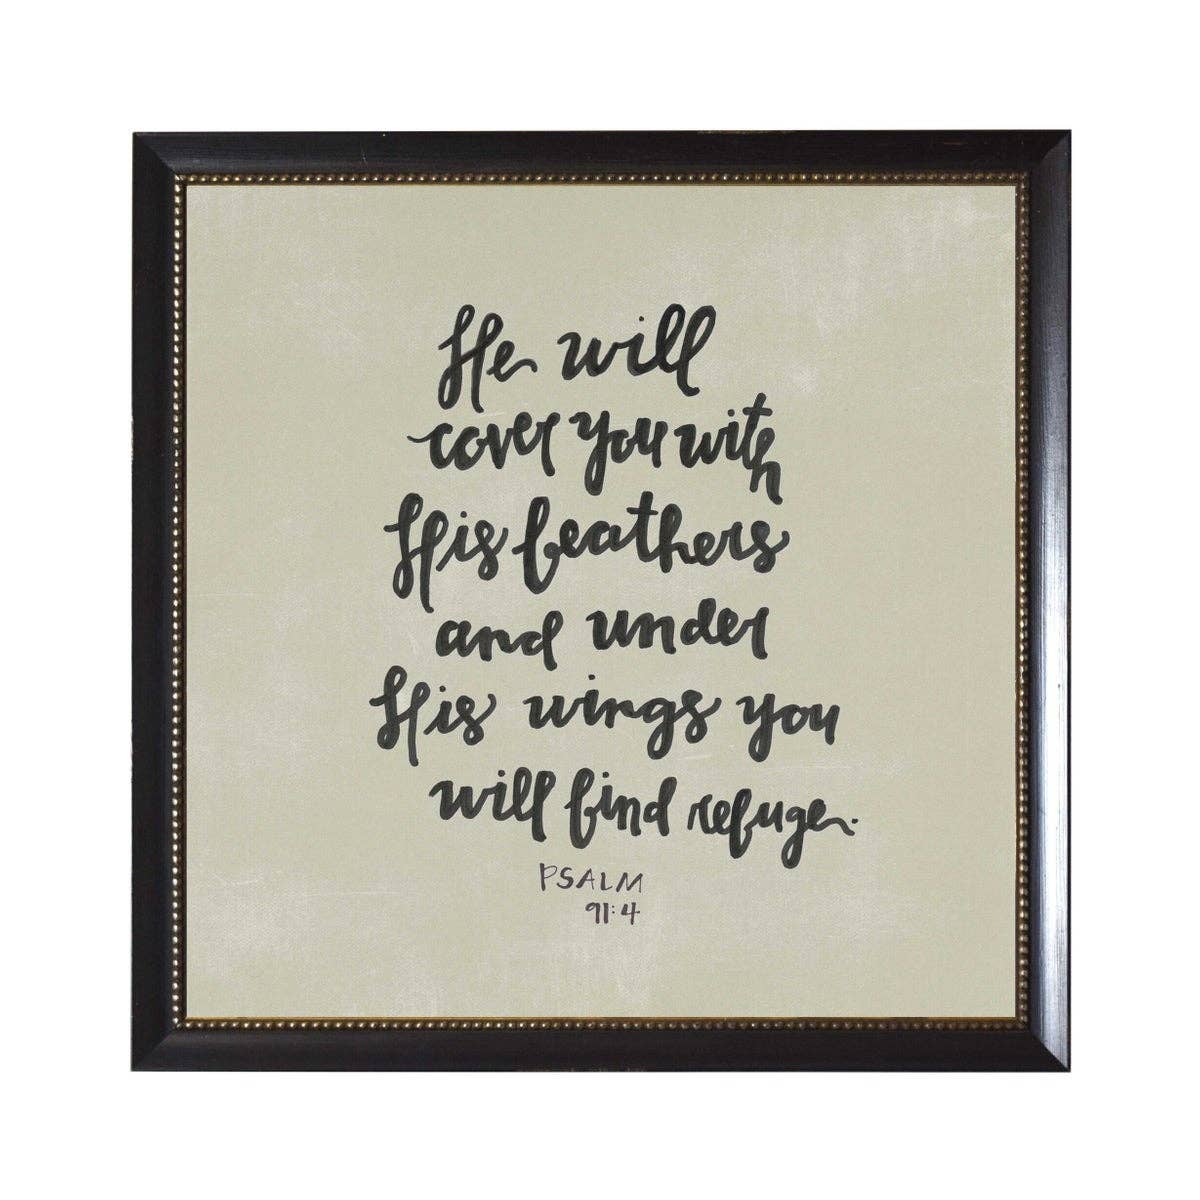 He will
cover you with
His feathers
and under
His wings you
will find refuge.
PSALM
91:4